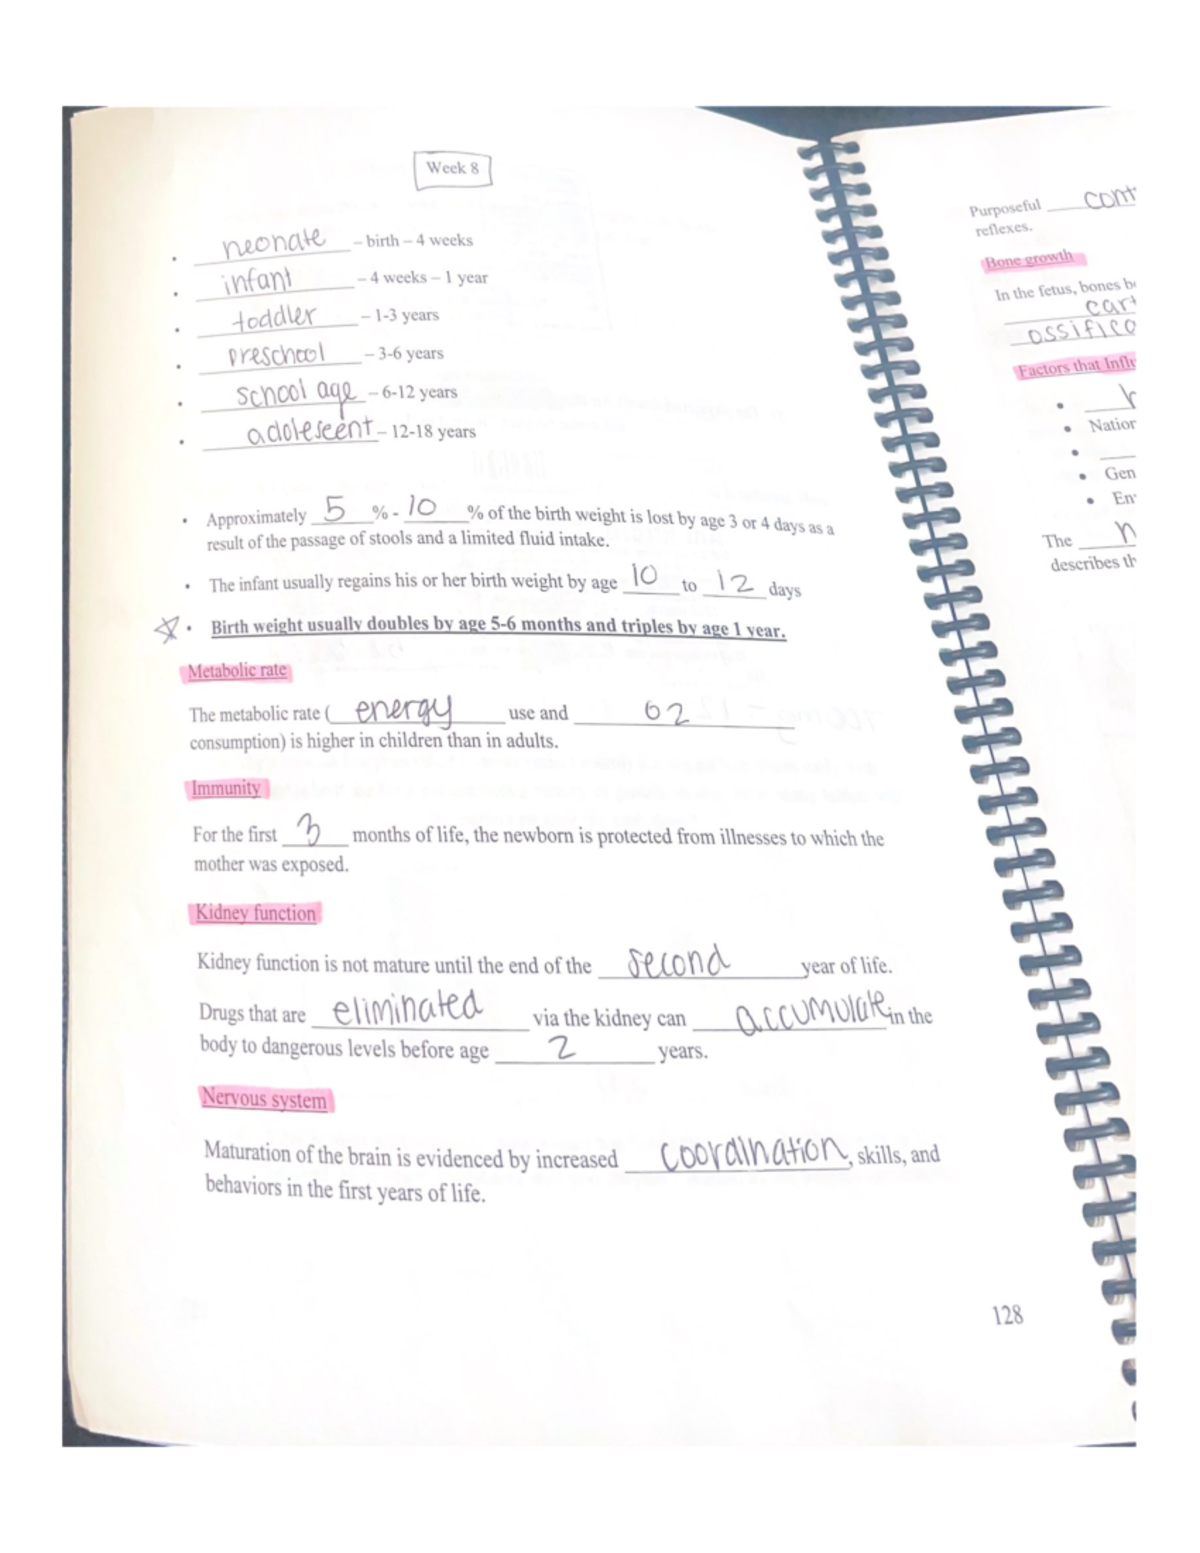 Week 8
• neonate – birth – 4 weeks
• infant – 4 weeks – 1 year
• toddler – 1-3 years
• preschool – 3-6 years
• school age – 6-12 years
• adolescent – 12-18 years
• Approximately 5 % - 10 % of the birth weight is lost by age 3 or 4 days as a
result of the passage of stools and a limited fluid intake.
• The infant usually regains his or her birth weight by age 10 to 12 days
• Birth weight usually doubles by age 5-6 months and triples by age 1 year.
Metabolic rate
The metabolic rate ( energy use and O2
consumption) is higher in children than in adults.
Immunity
For the first 3 months of life, the newborn is protected from illnesses to which the
mother was exposed.
Kidney function
Kidney function is not mature until the end of the second year of life.
Drugs that are eliminated via the kidney can accumulate in the
body to dangerous levels before age 2 years.
Nervous system
Maturation of the brain is evidenced by increased coordination, skills, and
behaviors in the first years of life.
128
Purposeful cont
reflexes.
Bone growth
In the fetus, bones b
cart
ossifica
Factors that Influ
• h
• Nation
•
• Gen
• En
The n
describes th